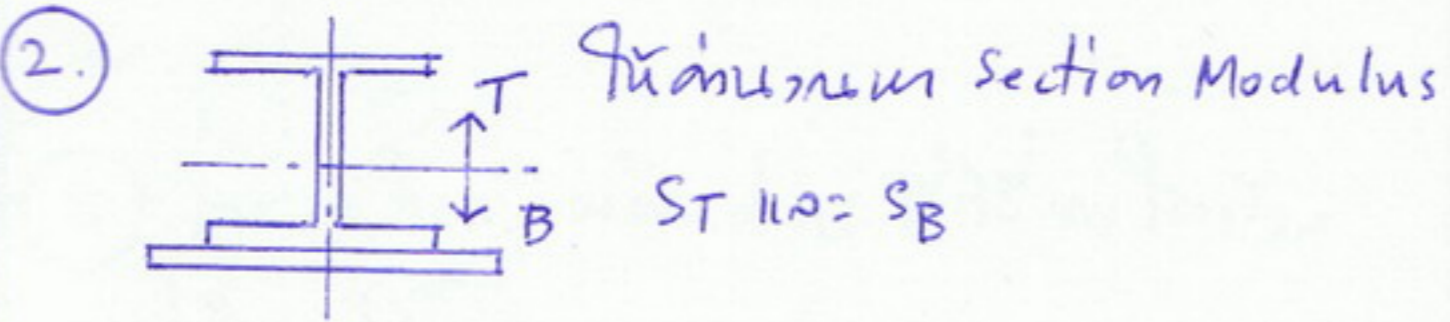 2. ให้คำนวณหา Section Modulus
T
B
S_T และ S_B